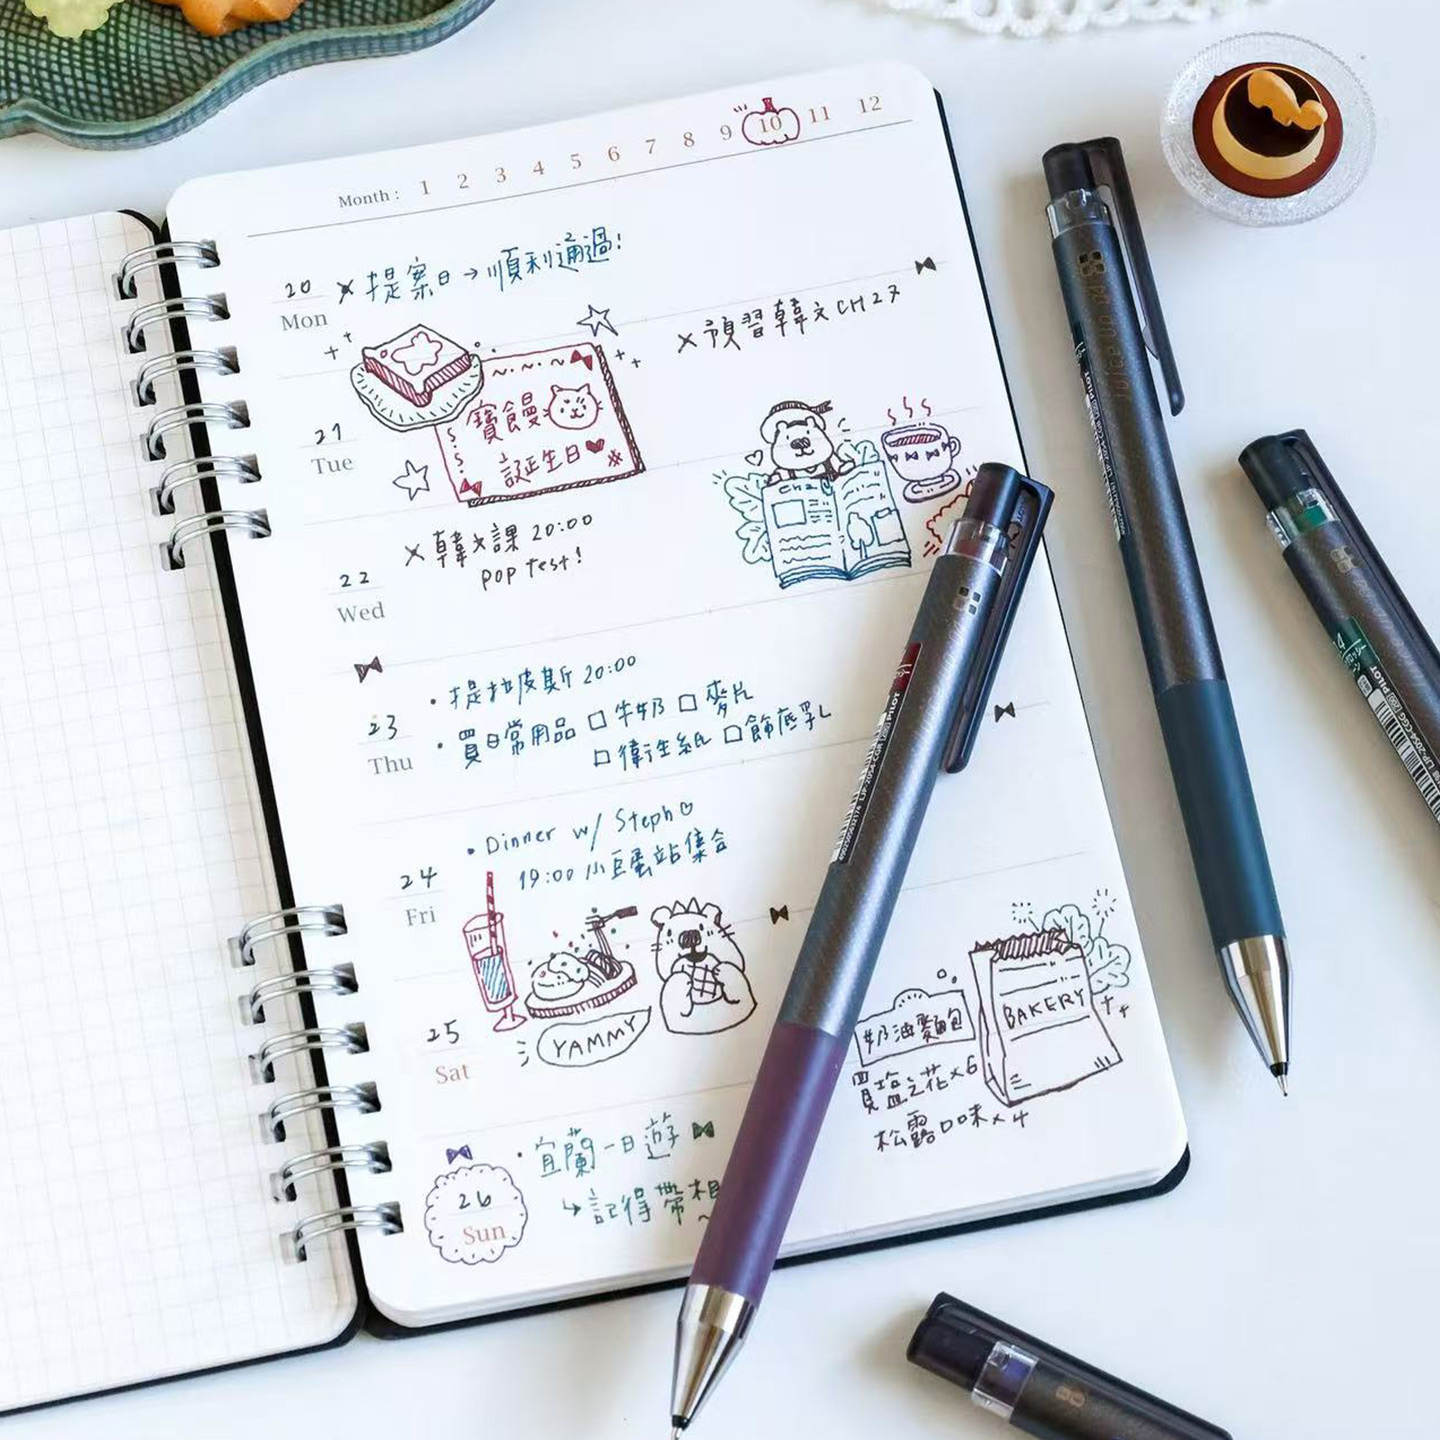 Month : 1 2 3 4 5 6 7 8 9 10 11 12
20 Mon
×提案日→順利通過!
×預習韓文CH27
21 Tue
寶饅
誕生日
CH2
22 Wed
×韓文課 20:00
pop test!
23 Thu
・提拉皮斯 20:00
・買日常用品 □牛奶 □麥片
□衛生紙 □飾底乳
24 Fri
・Dinner w/ Steph♡
19:00 小巨蛋站集合
25 Sat
YAMMY
奶油麵包
BAKERY
買塩之花×6
松露口味×4
26 Sun
・宜蘭一日遊
↳記得帶相
PILOT
LJP-20S4-CGR
4902505632174
PILOT
PILOT
LJP-20S4-CGG